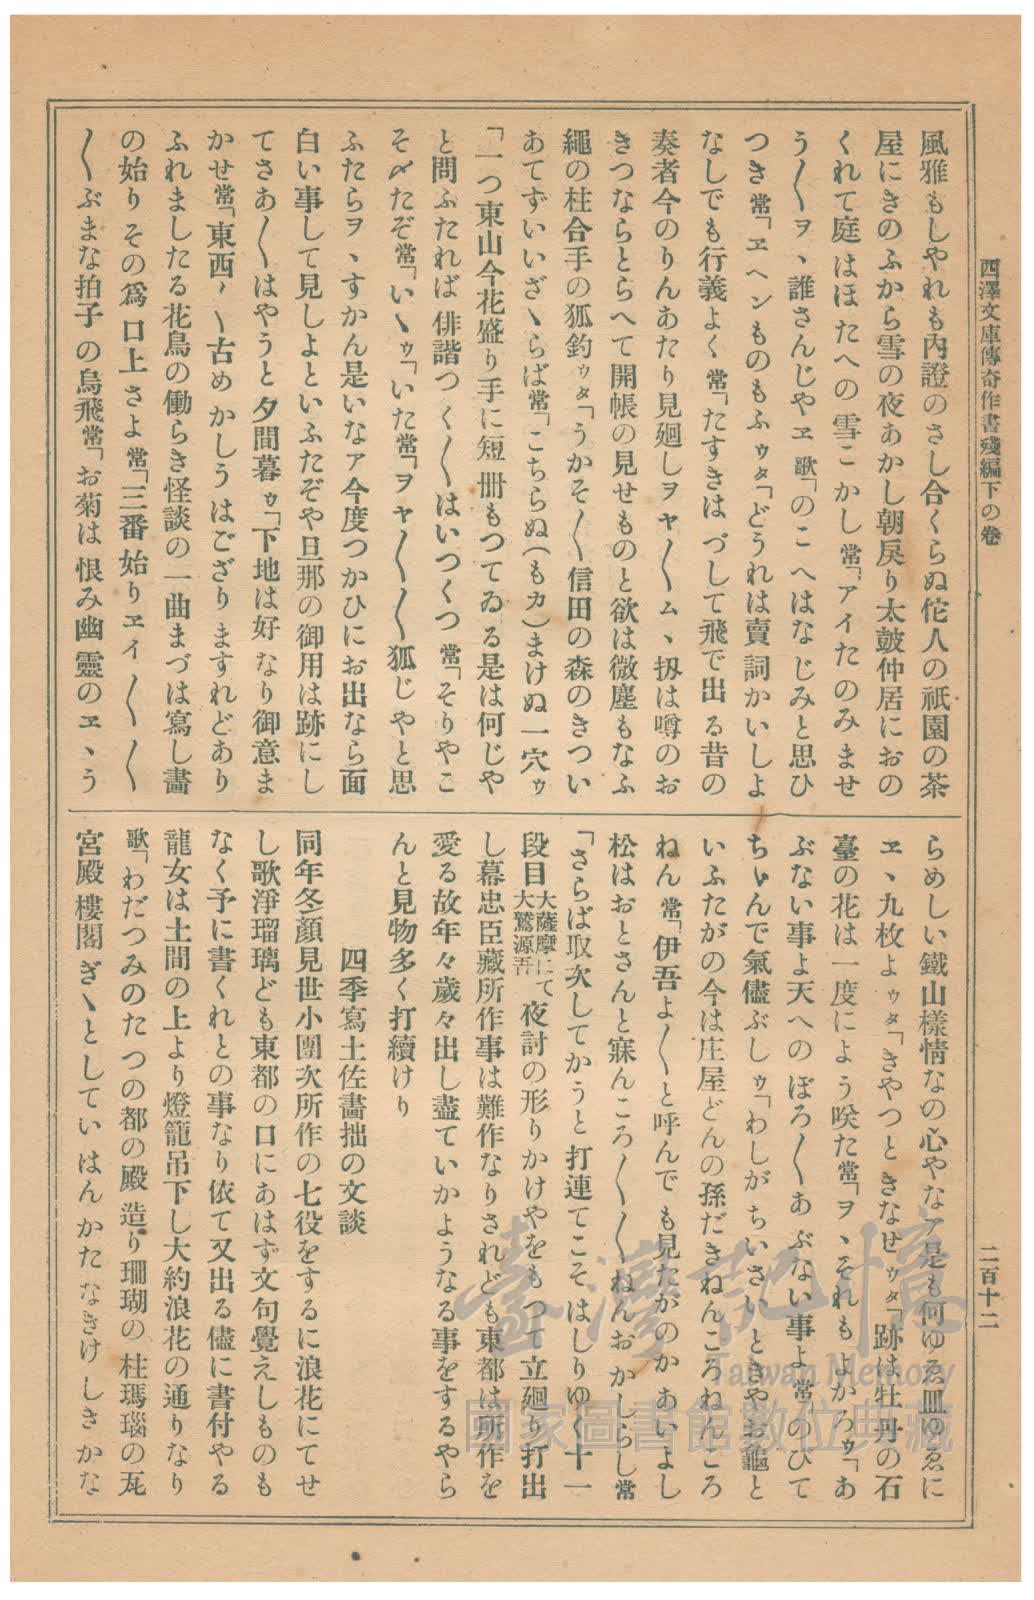 西澤文庫傳奇作書殘編下の卷
二百十二
風雅もしやれも内證のさし合くらぬ侘人の祇園の茶
屋にきのふから雪の夜あかし朝戻り太皷仲居におの
くれて庭はほたへの雪こかし常「アイたのみませ
う〳〵ヲヽ誰さんじやヱ歌「のこへはなじみと思ひ
つき常「ヱヘンものもふゥタ「どうれは賣詞かいしよ
なしでも行義よく常「たすきはづして飛で出る昔の
奏者今のりんあたり見廻しヲヤ〳〵ムヽ扨は噂のお
きつならとらへて開帳の見せものと欲は微塵もなふ
繩の柱合手の狐釣ゥタ「うかそ〳〵信田の森のきつい
あてずいいざヽらば常「こちらぬ(もカ)まけぬ一穴ゥ
「一つ東山今花盛り手に短冊もつてゐる是は何じや
と問ふたれば俳諧つく〳〵はいつくつ常「そりやこ
そ〆たぞ常「いヽゥ「いた常「ヲヤ〳〵〳〵狐じやと思
ふたらヲヽすかん是いなァ今度つかひにお出なら面
白い事して見しよといふたぞや旦那の御用は跡にし
てさあ〳〵はやうと夕間暮ゥ「下地は好なり御意ま
かせ常「東西〳〵古めかしうはござりますれどあり
ふれましたる花鳥の働らき怪談の一曲まづは寫し畵
の始りその爲口上さよ常「三番始りヱイ〳〵〳〵
〳〵ぶまな拍子の烏飛常「お菊は恨み幽靈のヱヽう
らめしい鐵山樣情なの心やなァ是も何ゆゑ皿ゆゑに
ヱヽ九枚よゥタ「きやつときなせゥタ「跡は牡丹の石
臺の花は一度によう咲た常「ヲヽそれもよかろゥ「あ
ぶない事よ天へのぼろ〳〵あぶない事よ常「のひて
ちゝんで氣儘ぶしゥ「わしがちいさいときやお龜と
いふたがの今は庄屋どんの孫だきねんころねんころ
ねん常「伊吾よ〳〵と呼んでも見たがのかあいよし
松はおとさんと寐んころ〳〵〳〵ねんおかしらし常
「さらば取次してかうと打連てこそはしりゆく十一
段目大薩摩にて大鷲源吾夜討の形りかけやをもつて立廻り打出
し幕忠臣藏所作事は難作なりされども東都は所作を
愛る故年々歳々出し盡ていかようなる事をするやら
んと見物多く打續けり
四季寫土佐畵拙の文談
同年冬顏見世小團次所作の七役をするに浪花にてせ
し歌淨瑠璃ども東都の口にあはず文句覺えしものも
なく予に書くれとの事なり依て又出る儘に書付やる
龍女は土間の上より燈籠吊下し大約浪花の通りなり
歌「わだつみのたつの都の殿造り珊瑚の柱瑪瑙の瓦
宮殿樓閣ぎヽとしていはんかたなきけしきかな